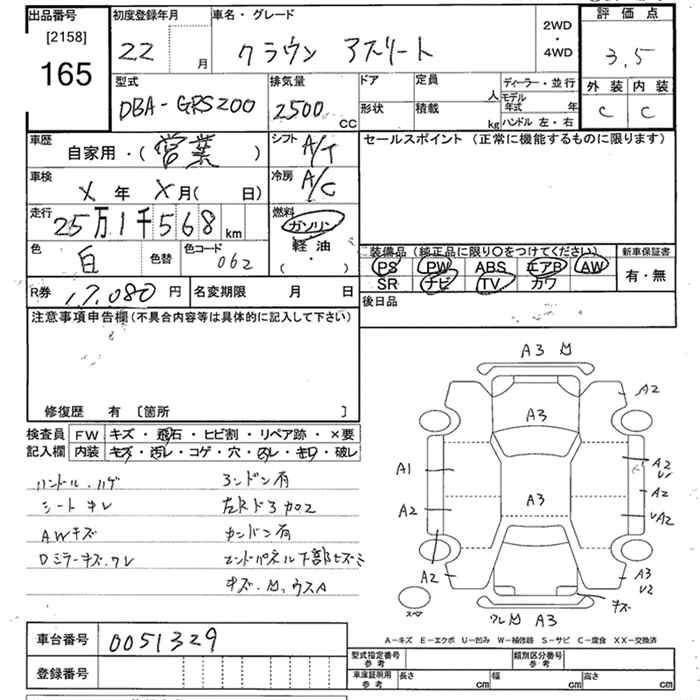 出品番号
[2158]
165
初度登録年月
22 月
車名・グレード
クラウン アスリート
2WD
・
4WD
評価点
3.5
外装 内装
C C
型式
DBA-GRS200
排気量
2500 CC
ドア
形状
定員 人
積載 kg
ディーラー・並行
モデル年式 年
ハンドル 左・右
車歴
自家用・(営業)
シフト A/T
セールスポイント (正常に機能するものに限ります)
車検
X年 X月( 日)
冷房 A/C
走行
25万1千568km
燃料
ガソリン
軽油
( ・ )
色
白
色替
色コード
062
装備品 (純正品に限り〇をつけてください。)
新車保証書
PS PW ABS エアB AW
SR ナビ TV カワ
有・無
R券 17,080円
名変期限 月 日
後日品
注意事項申告欄 (不具合内容等は具体的に記入して下さい)
修復歴 有 [箇所 ]
検査員
記入欄
FW キズ・飛石・ヒビ割・リペア跡・×要
内装 キズ・汚レ・コゲ・穴・スレ・キレ・破レ
ハンドル・ハゲ
シートキレ
AWキズ
Dミラーキズ・ワレ
左Rドアカロ2
カンバン有
エンドパネル下部ヒズミ
A3
A2
A3
A1
A2
A3
A2
A2
A2
A2
A3
U2
キズ
スペア
A3
A-キズ E-エクボ U-凹み W-補修跡 S-サビ C-腐食 XX-交換済
車台番号
0051329
登録番号
型式指定番号
参考
類別区分番号
参考
車庫証明用
参考
長さ cm
幅 cm
高さ cm